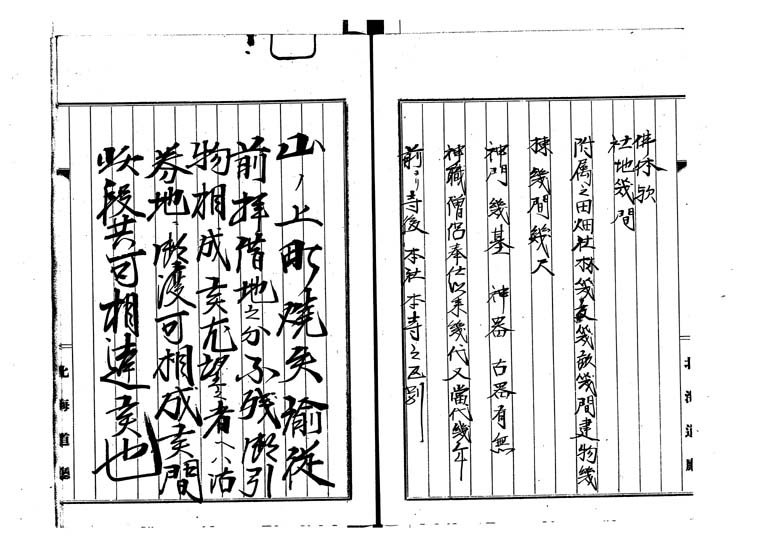 件体欤
社地幾間
附属之田畑社林幾反幾畝幾間建物幾
棟幾間幾尺
神門幾基 神器 古器有無
神職僧侶奉仕以来幾代又當代幾年
前ヨリ寺後本社本寺之区別
北海道廳
山ノ上町焼失前従
前拝借地之分不残御引
物相成亥尤望之者ヘハ沽
券地御渡可相成亥間
此段共可相達亥也
北海道廳